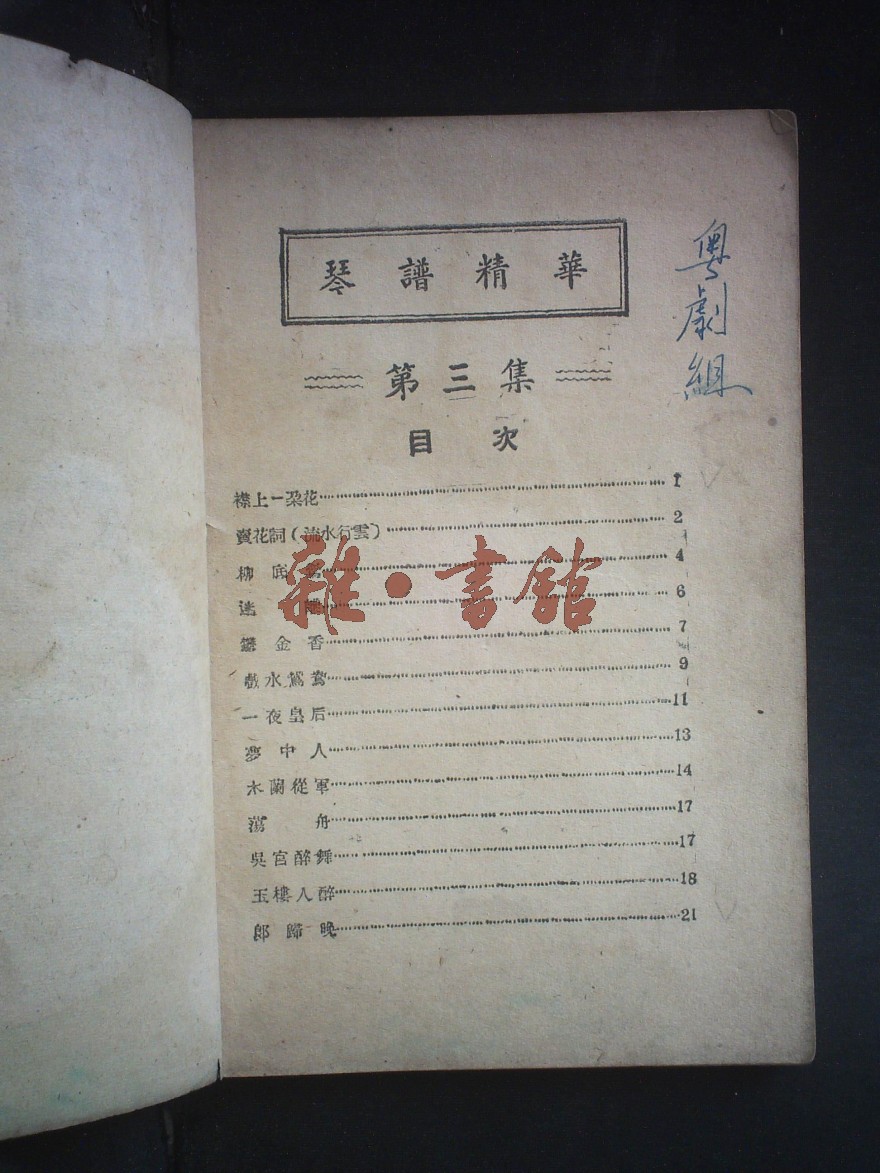 琴譜精華
粵劇組
第三集
目次
襟上一朶花 1
賣花詞(流水行雲) 2
柳底鶯 4
迷離 6
鑽金香 7
戲水鴛鴦 9
一夜皇后 11
夢中人 13
木蘭從軍 14
蕩舟 17
吳宮醉舞 17
玉樓人醉 18
郎歸晚 21
雜·書館